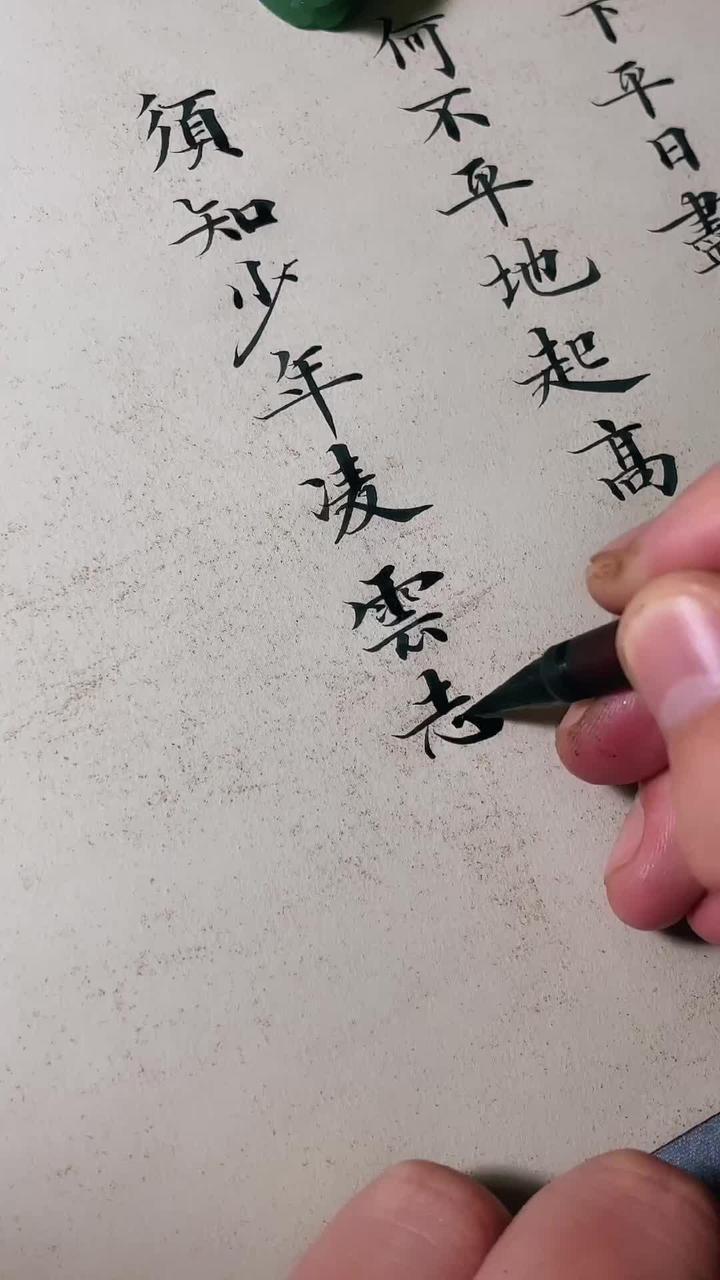 下平日盡
何不平地起高
須知少年凌雲志